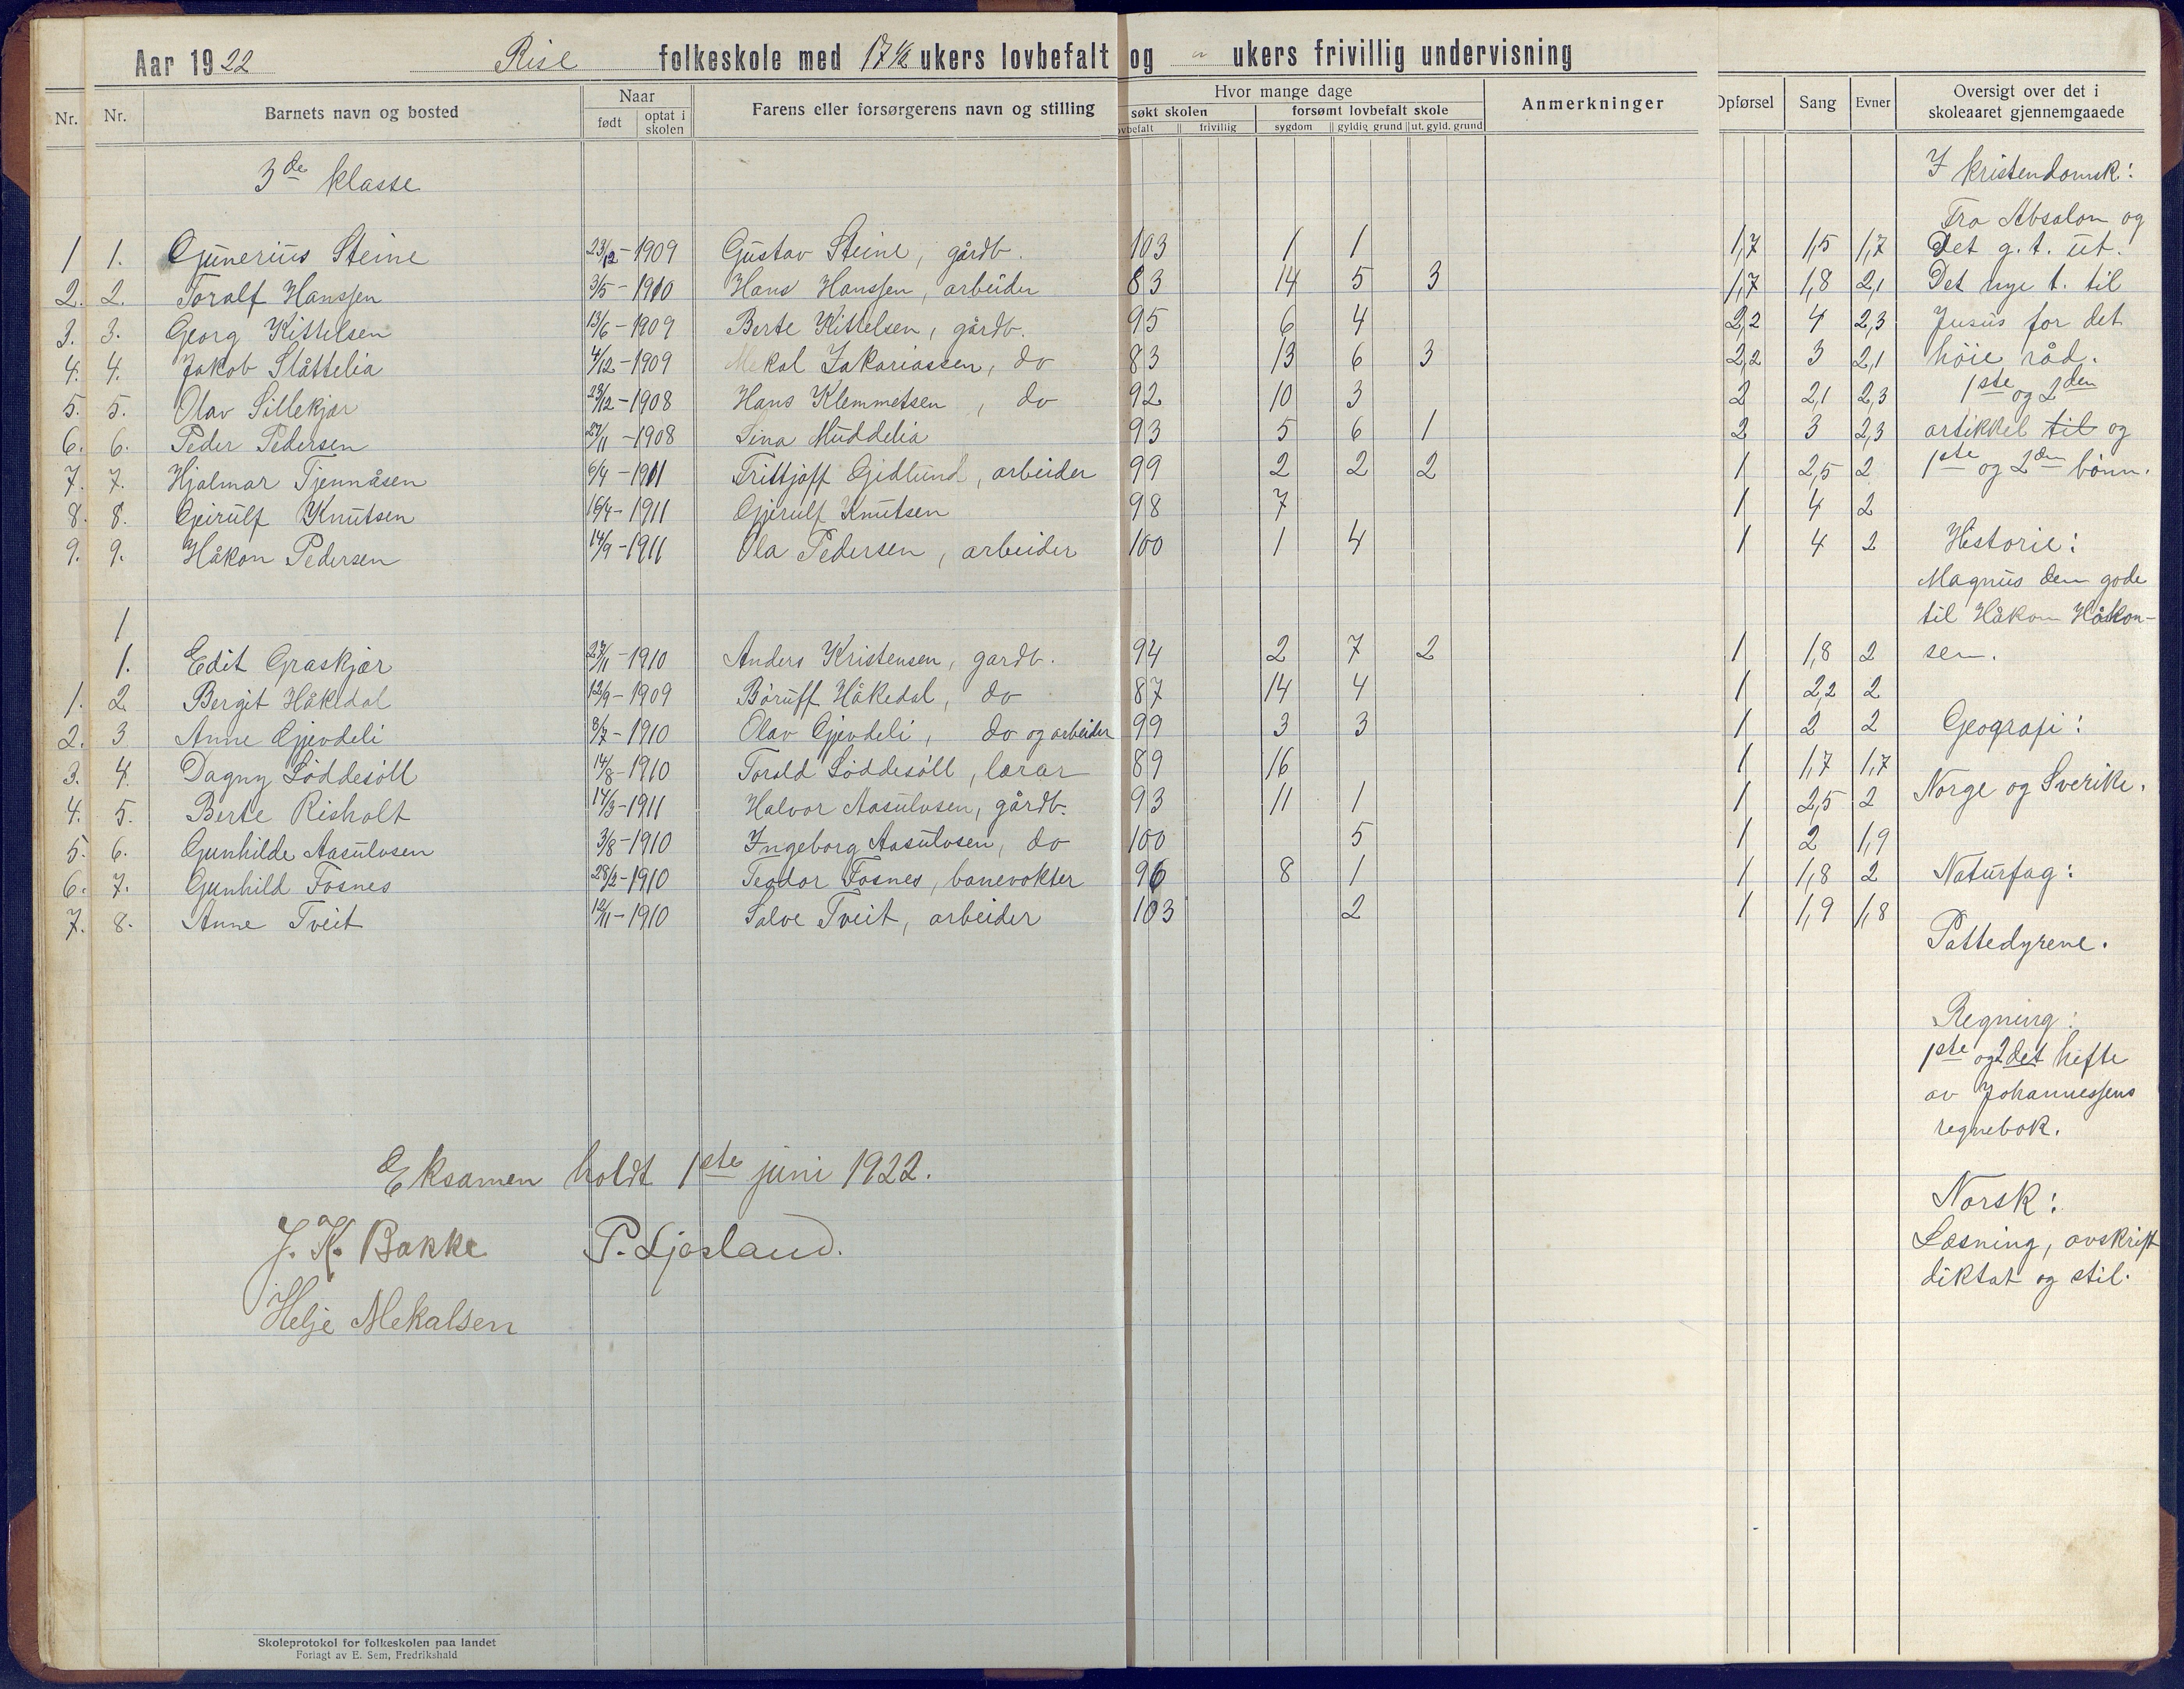 Aar 1922 Rise folkeskole med 17 1/2 ukers lovbefalt og " ukers frivillig undervisning
Nr. Nr. Barnets navn og bosted Naar født optat i skolen Farens eller forsørgerens navn og stilling Hvor mange dage søkt skolen lovbefalt frivillig forsømt lovbefalt skole sygdom gyldig grund ut. gyld. grund Anmerkninger Opførsel Sang Evner Oversigt over det i skoleaaret gjennemgaaede
3de klasse I kristendomsk:
Fra Absalon og
1 1. Gunerius Steine 23/12-1909 Gustav Steine, gårdb. 103 1 1 1,7 1,5 1,7 Det g. t. ut.
2. 2. Toralf Hanssen 3/5-1910 Hans Hanssen, arbeider 83 14 5 3 1,7 1,8 2,1 Det nye t. til
3. 3. Georg Kittelsen 13/6-1909 Berte Kittelsen, gårdb. 95 6 4 2,2 4 2,3 Jusus for det
4. 4. Jakob Slåttelia 4/12-1909 Mekal Zakariassen, do 83 13 6 3 2,2 3 2,1 høie råd.
5. 5. Olav Sillekjær 23/12-1908 Hans Klemmetsen, do 92 10 3 2 2,1 2,3 1ste og 2den
6. 6. Peder Pedersen 27/11-1908 Lina Muddelia 93 5 6 1 2 3 2,3 artikkel til og
7. 7. Hjalmar Tjennåsen 6/4-1911 Frittjoff Gidlund, arbeider 99 2 2 2 1 2,5 2 1ste og 2den bønn.
8. 8. Geirulf Knutsen 16/4-1911 Gjerulf Knutsen 98 7 1 4 2
9. 9. Håkon Pedersen 14/9-1911 Ola Pedersen, arbeider 100 1 4 1 4 2 Historie:
Magnus den gode
1 til Håkon Håkon-
1. Edit Graskjær 27/11-1910 Anders Kristensen, gardb. 94 2 7 2 1 1,8 2 sen.
1. 2 Bergit Håkedal 12/9-1909 Børuff Håkedal, do 87 14 4 1 2,2 2
2. 3 Anne Gjevdeli 3/7-1910 Olav Gjevdeli, do og arbeider 99 3 3 1 2 2 Geografi:
3. 4. Dagny Løddesøll 14/8-1910 Torald Løddesøll, lærar 89 16 1 1,7 1,7
4. 5. Berte Risholt 14/3-1911 Halvor Aasulvsen, gårdb. 93 11 1 1 2,5 2 Norge og Sverike.
5. 6. Gunhilde Aasulvsen 3/8-1910 Ingeborg Aasulvsen, do 100 5 1 2 1,9
6. 7. Gunhild Fosnes 28/2-1910 Teodor Fosnes, banevokter 96 8 1 1 1,8 2 Naturfag:
7. 8. Anne Tveit 12/11-1910 Salve Tveit, arbeider 103 2 1 1,9 1,8
Pattedyrene.
Regning:
1ste og 2det hefte
av Johannessens
regnebok.
Eksamen holdt 1ste juni 1922.
Norsk:
J. K. Bakke P. Ljosland.
Læsning, avskrift
diktat og stil.
Helje Mekalsen
Skoleprotokol for folkeskolen paa landet
Forlagt av E. Sem, Fredrikshald